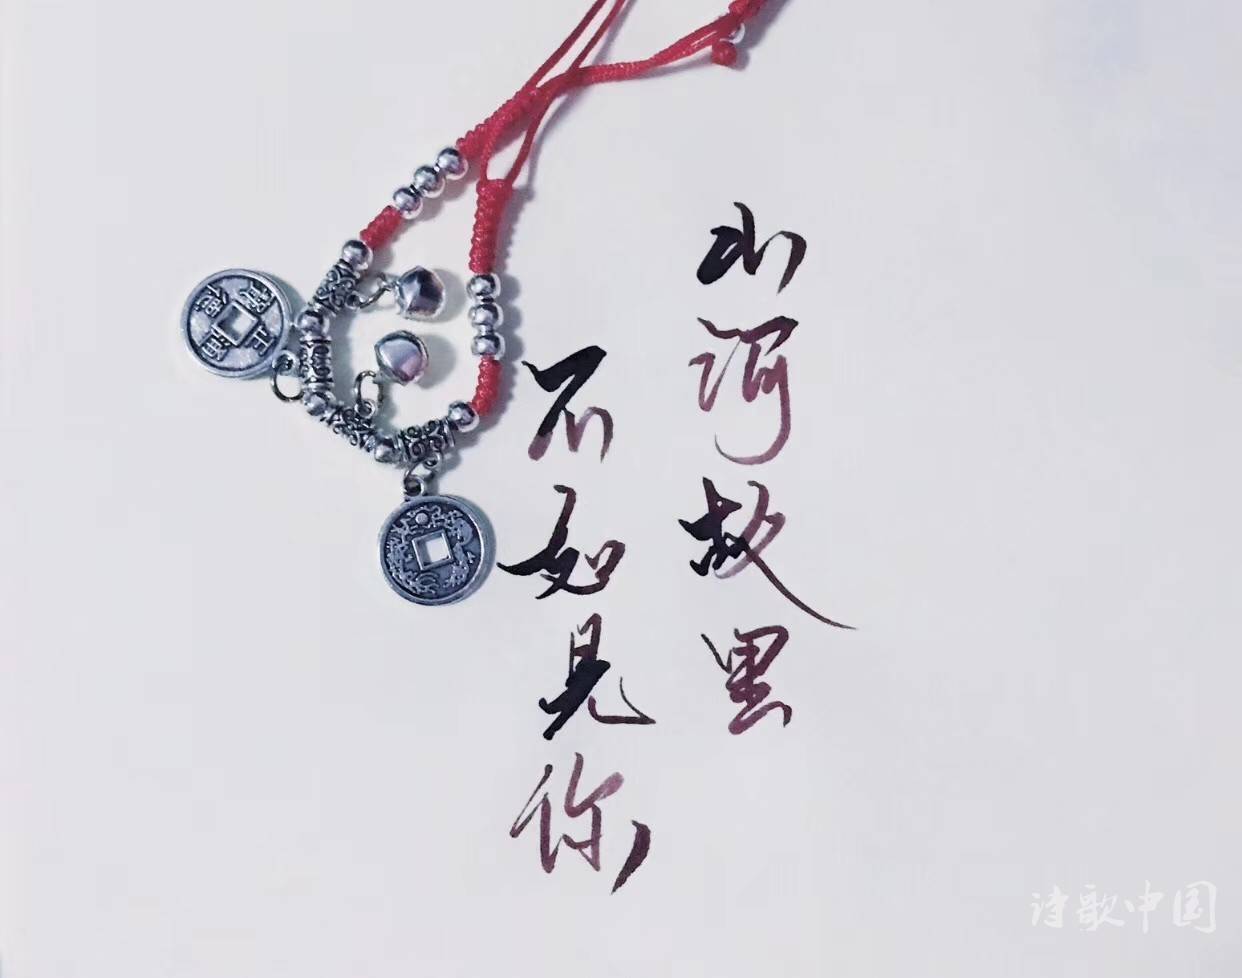 山河故里
不如见你
诗歌中国